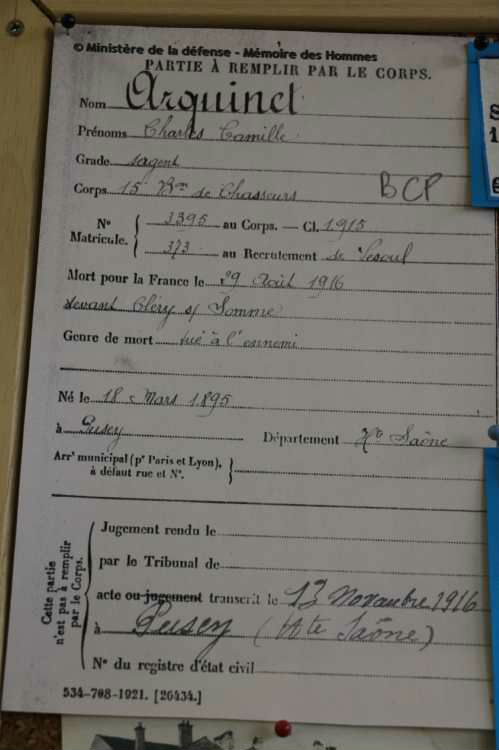 © Ministère de la défense - Mémoire des Hommes
PARTIE À REMPLIR PAR LE CORPS.
Nom Arquinet
Prénoms Charles Camille
Grade sergent
Corps 15e Bon de Chasseurs BCP
N° Matricule. { 3395 au Corps. — Cl. 1915
373 au Recrutement de Vesoul
Mort pour la France le 29 Août 1916
devant Cléry s/ Somme
Genre de mort tué à l'ennemi
Né le 18 Mars 1895
à Pusey Département Hte Saône
Arrt municipal (pr Paris et Lyon),
à défaut rue et N°.
Cette partie
n'est pas à remplir
par le Corps.
Jugement rendu le
par le Tribunal de
acte ou jugement transcrit le 13 Novembre 1916
à Pusey (Hte Saône)
N° du registre d'état civil
534-708-1921. [26434.]